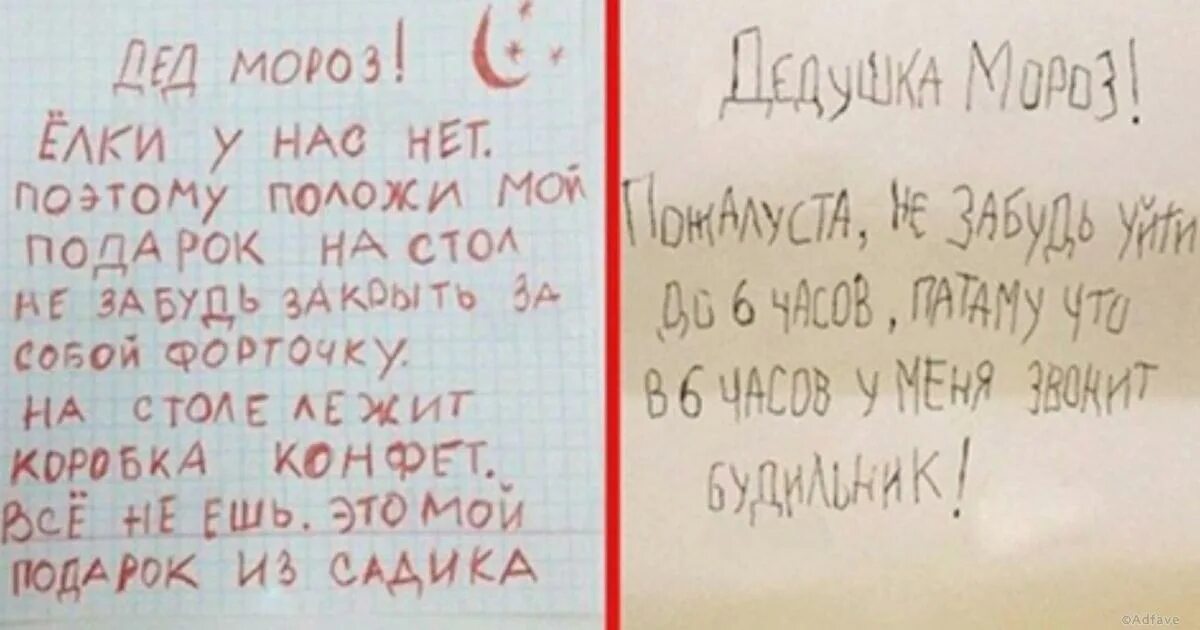 ДЕД МОРОЗ!
ЁЛКИ У НАС НЕТ.
ПОЭТОМУ ПОЛОЖИ МОЙ
ПОДАРОК НА СТОЛ
НЕ ЗАБУДЬ ЗАКРЫТЬ ЗА
СОБОЙ ФОРТОЧКУ.
НА СТОЛЕ ЛЕЖИТ
КОРОБКА КОНФЕТ.
ВСЁ НЕ ЕШЬ. ЭТО МОЙ
ПОДАРОК ИЗ САДИКА
ДЕДУШКА МОРОЗ!
ПОЖАЛУСТА, НЕ ЗАБУДЬ УЙТИ
ДО 6 ЧАСОВ, ПАТАМУ ЧТО
В 6 ЧАСОВ У МЕНЯ ЗВОНИТ
БУДИЛЬНИК!
©Adfave